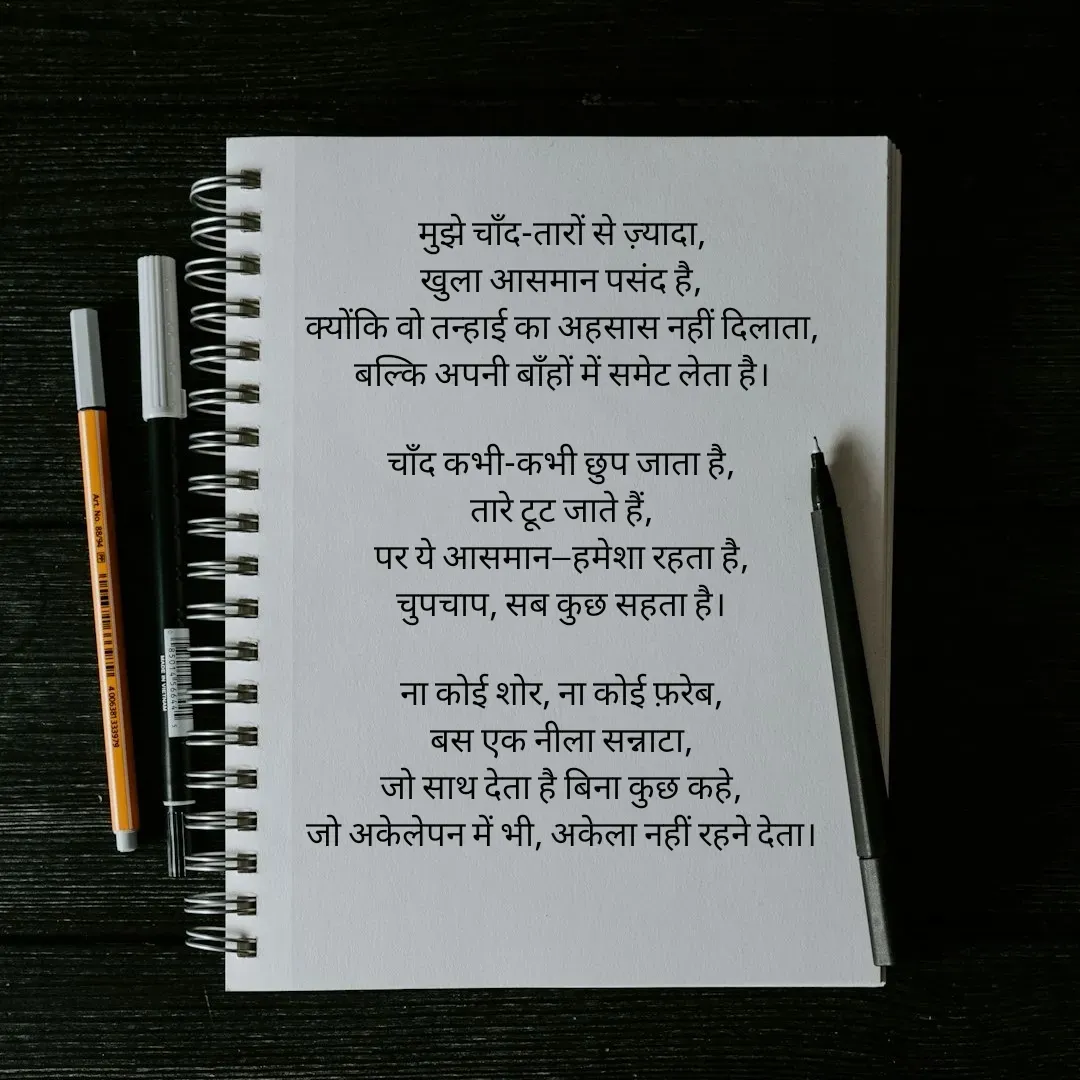 मुझे चाँद-तारों से ज़्यादा,
खुला आसमान पसंद है,
क्योंकि वो तन्हाई का अहसास नहीं दिलाता,
बल्कि अपनी बाँहों में समेट लेता है।
चाँद कभी-कभी छुप जाता है,
तारे टूट जाते हैं,
पर ये आसमान–हमेशा रहता है,
चुपचाप, सब कुछ सहता है।
ना कोई शोर, ना कोई फ़रेब,
बस एक नीला सन्नाटा,
जो साथ देता है बिना कुछ कहे,
जो अकेलेपन में भी, अकेला नहीं रहने देता।
Art. No. 88/94
4 006381 333979
MADE IN VIETNAM